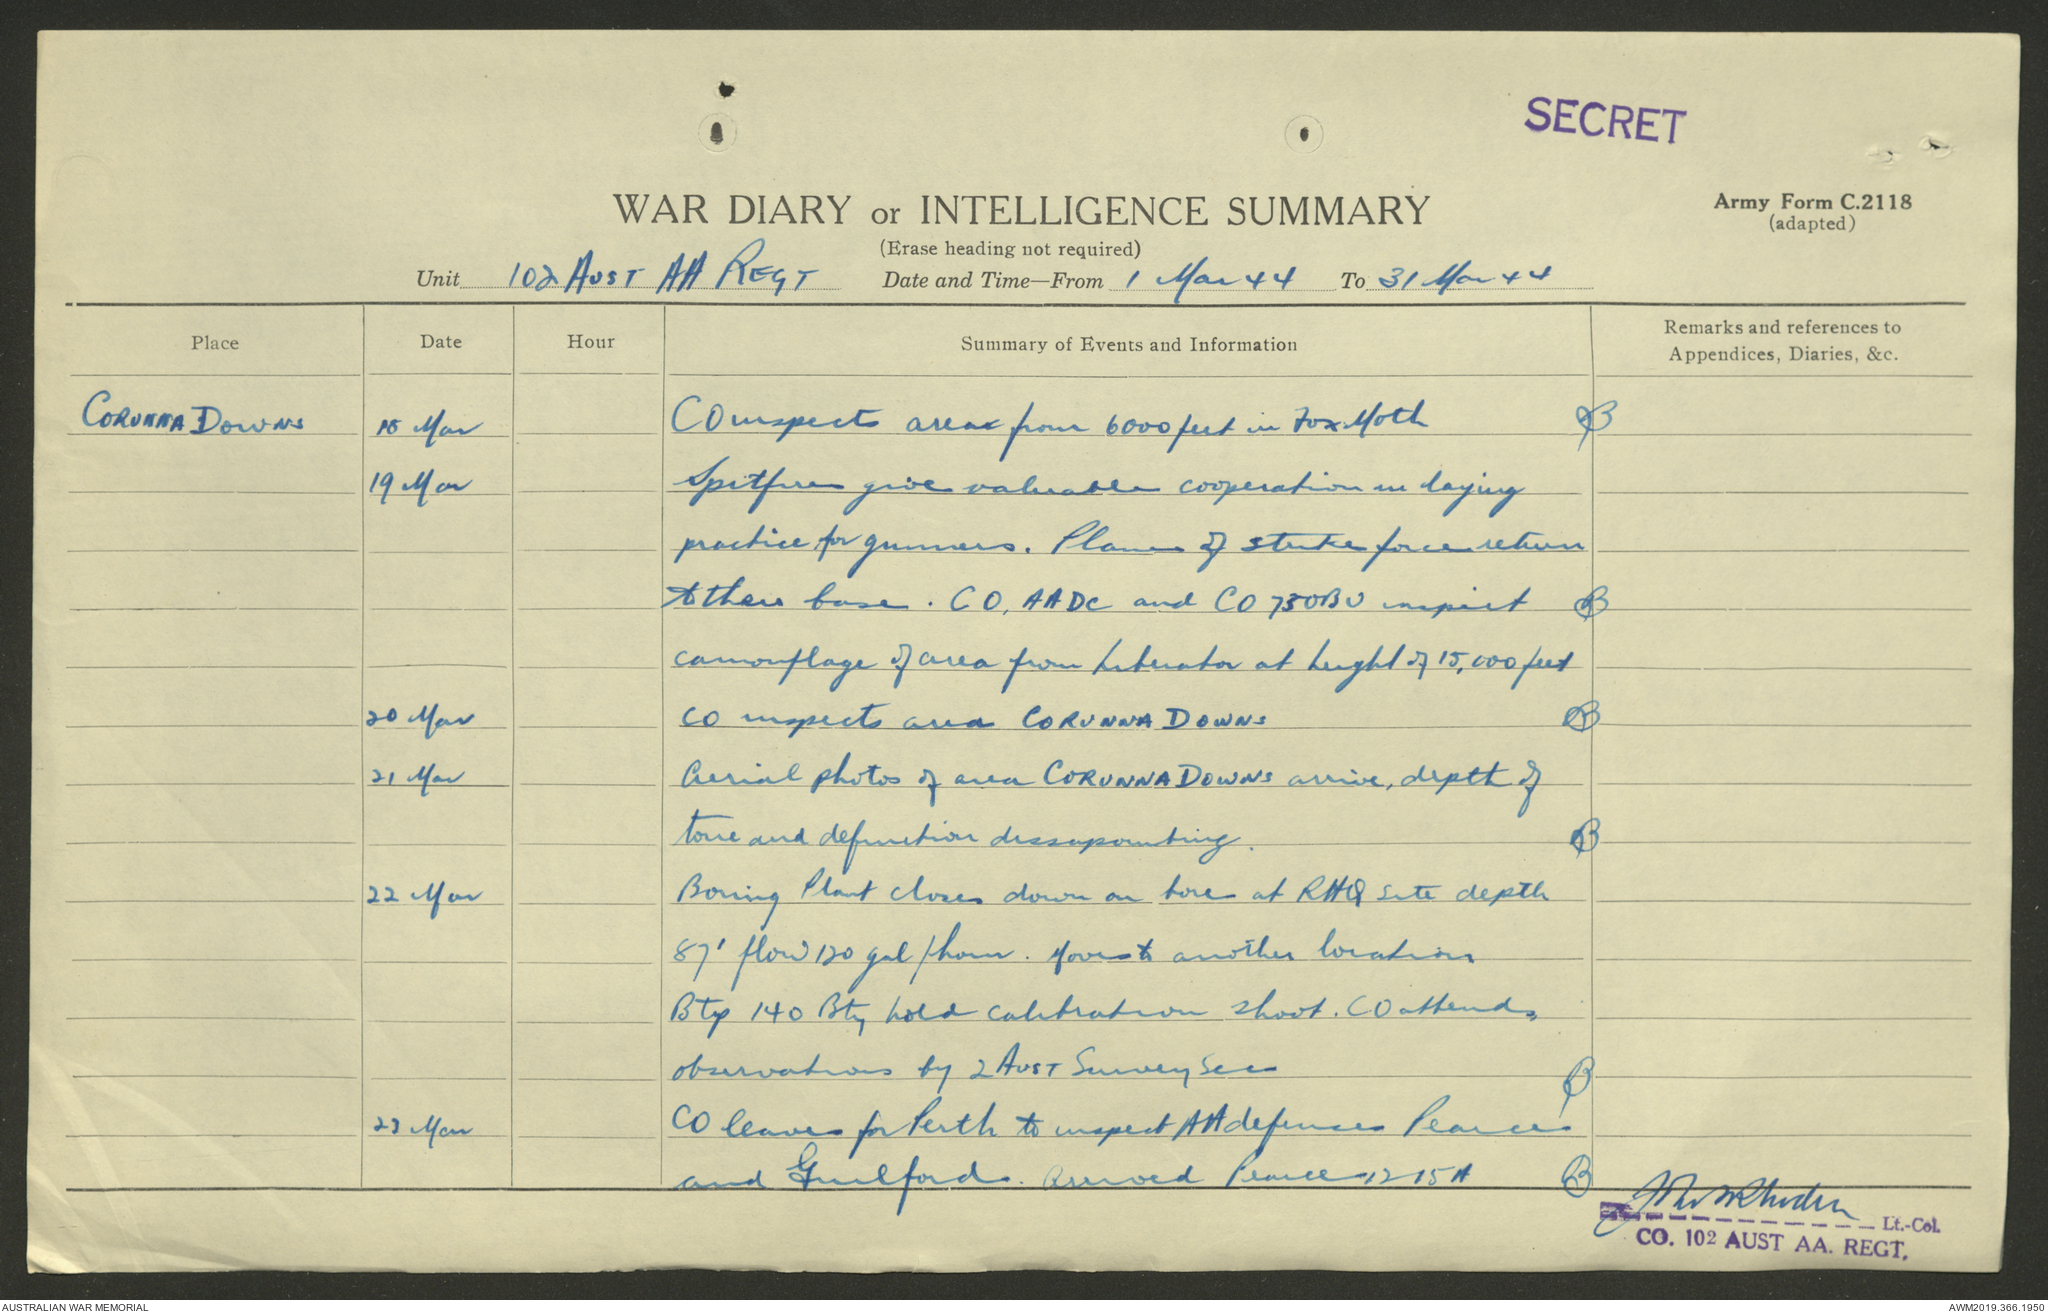 SECRET
WAR DIARY or INTELLIGENCE SUMMARY
Army Form C.2118
(adapted)
(Erase heading not required)
Unit 102 AUST AA REGT Date and Time—From 1 Mar 44 To 31 Mar 44
Place Date Hour Summary of Events and Information Remarks and references to
Appendices, Diaries, &c.
CORUNNA DOWNS 18 Mar CO inspects area from 6000 feet in Fox Moth
19 Mar Spitfires give valuable cooperation in laying
practice for gunners. Planes of strike force return
to their base. CO, AADC and CO 73 OBU inspect
camouflage of area from Liberator at height of 15,000 feet
20 Mar CO inspects area CORUNNA DOWNS
21 Mar Aerial photos of area CORUNNA DOWNS arrive, depth of
tone and definition dissapointing.
22 Mar Boring Plant closes down on bore at RHQ site depth
87' flow 120 gal/hour. Moves to another location
Bty 140 Bty hold calibration shoot. CO attends,
observations by 2 AUST Survey Sec
23 Mar CO leaves for Perth to inspect AA defences Pearce
and Guilford. Arrived Pearce 1215H
Lt.-Col.
CO. 102 AUST AA. REGT.
AUSTRALIAN WAR MEMORIAL
AWM2019.366.1950